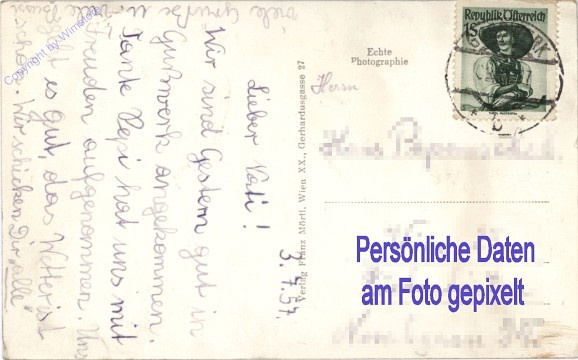 3.7.54.
Lieber Vati!
Wir sind Gestern gut in
Gußwerk angekommen.
Tante Pepi hat uns mit
Freuden aufgenommen. Uns
geht es gut das Wetter ist
schön. Wir schicken Dir „alle"
viele Grüsse u. viele
Copyright by Wimsleitner
Verlag Franz Mörtl, Wien XX., Gerhardusgasse 27
Echte
Photographie
Republik Österreich
1S
Herrn
Persönliche Daten
am Foto gepixelt